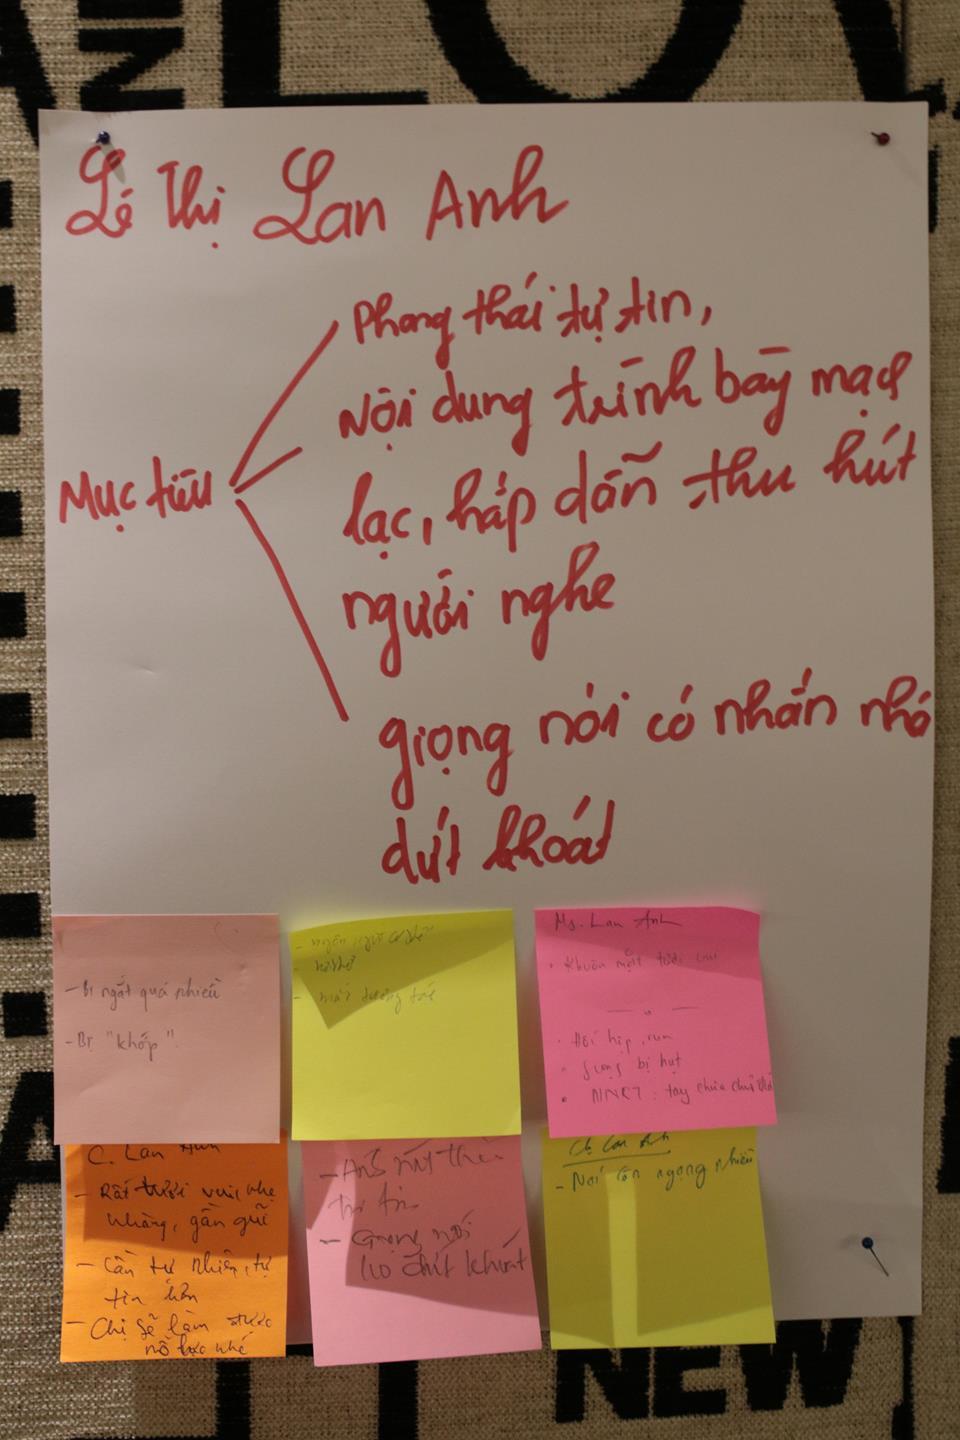 Lê Thị Lan Anh
Phong thái tự tin,
Nội dung trình bày mạch
lạc, hấp dẫn thu hút
người nghe
Mục tiêu
giọng nói có nhấn nhá
dứt khoát
- Bị ngắt quá nhiều
- Bị "khớp".
Ms. Lan Anh
Khuôn mặt tươi vui
Hồi hộp, run
Giọng bị hụt
NNKT: tay chưa
C. Lan Anh
- Rất tươi vui, nhẹ
nhàng, gần gũi
- Cần tự nhiên, tự
tin hơn
- Chị sẽ làm được
nỗ lực nhé
- Giọng nói
dứt khoát
Chị Lan Anh
- Nói còn ngọng nhiều
NEW